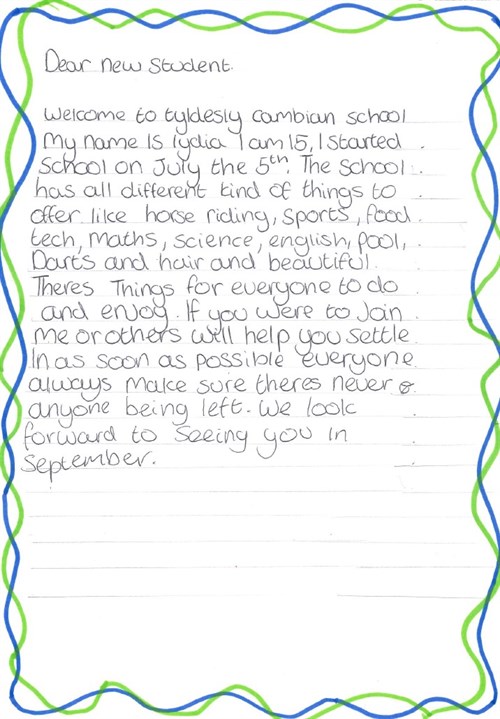 Dear new student.
Welcome to tyldesly cambian school
My name Is lydia I am 15, I started
School on July the 5th. The School
has all different kind of things to
offer like horse riding, sports, food
tech, Maths, science, english, pool,
Darts and hair and beautiful.
Theres Things for everyone to do
and enjoy. If you were to Join
me or others will help you settle
In as soon as possible everyone
always make sure theres never
anyone being left. We look
forward to Seeing you in
September.